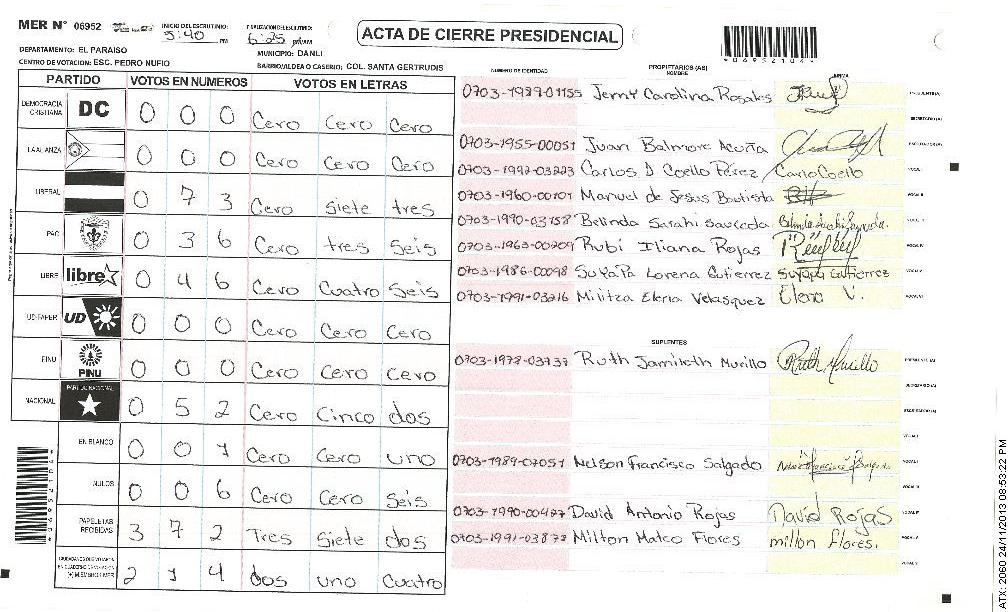 MER N° 06952 INICIO DEL ESCRUTINIO: 5:40 PM FINALIZACION DEL ESCRUTINIO: 6:25 PM/AM
ACTA DE CIERRE PRESIDENCIAL
*06952104*
DEPARTAMENTO: EL PARAISO MUNICIPIO: DANLI
CENTRO DE VOTACION: ESC. PEDRO NUFIO BARRIO/ALDEA O CASERIO: COL. SANTA GERTRUDIS
PARTIDO VOTOS EN NUMEROS VOTOS EN LETRAS
DEMOCRACIA CRISTIANA DC 0 0 0 Cero Cero Cero
LA ALIANZA 0 0 0 Cero Cero Cero
LIBERAL 0 7 3 Cero Siete tres
PAC 0 3 6 Cero tres Seis
LIBRE libre 0 4 6 Cero Cuatro Seis
UD-FAPER UD 0 0 0 Cero Cero Cero
PINU PINU 0 0 0 Cero Cero Cero
NACIONAL PARTIDO NACIONAL 0 5 2 Cero Cinco dos
EN BLANCO 0 0 1 Cero Cero uno
NULOS 0 0 6 Cero Cero Seis
PAPELETAS RECIBIDAS 3 7 2 Tres Siete dos
CIUDADANOS QUE VOTARON EN CUADERNO DE VOTACION (+) MIEMBROS MER 2 1 4 dos uno Cuatro
NUMERO DE IDENTIDAD PROPIETARIOS (AS) NOMBRE FIRMA
0703-1989-01155 Jenny Carolina Rosales PRESIDENTE (A)
SECRETARIO (A)
0703-1955-00051 Juan Balmore Acuña ESCRUTADOR (A)
0703-1992-03223 Carlos D Coello Pérez Carlo Coello VOCAL I
0703-1960-00101 Manuel de Jesus Bautista VOCAL II
0703-1990-03158 Belinda Sarahi Sauceda VOCAL III
0703-1963-00209 Rubi Iliana Rojas VOCAL IV
0703-1986-00098 Suyapa Lorena Gutierrez Suyapa Gutierrez VOCAL V
0703-1991-03216 Militza Elena Velasquez Elena V. VOCAL VI
SUPLENTES
0703-1978-03737 Ruth Jamileth Murillo Ruth Murillo PRESIDENTE (A)
SECRETARIO (A)
ESCRUTADOR (A)
VOCAL I
0703-1989-07051 Nelson Francisco Salgado VOCAL II
VOCAL III
0703-1990-00427 David Antonio Rojas David Rojas VOCAL IV
0703-1991-03877 Milton Marco Flores milton flores. VOCAL V
VOCAL VI
*06952104*
ATX: 2060 24/11/2013 08:53:22 PM